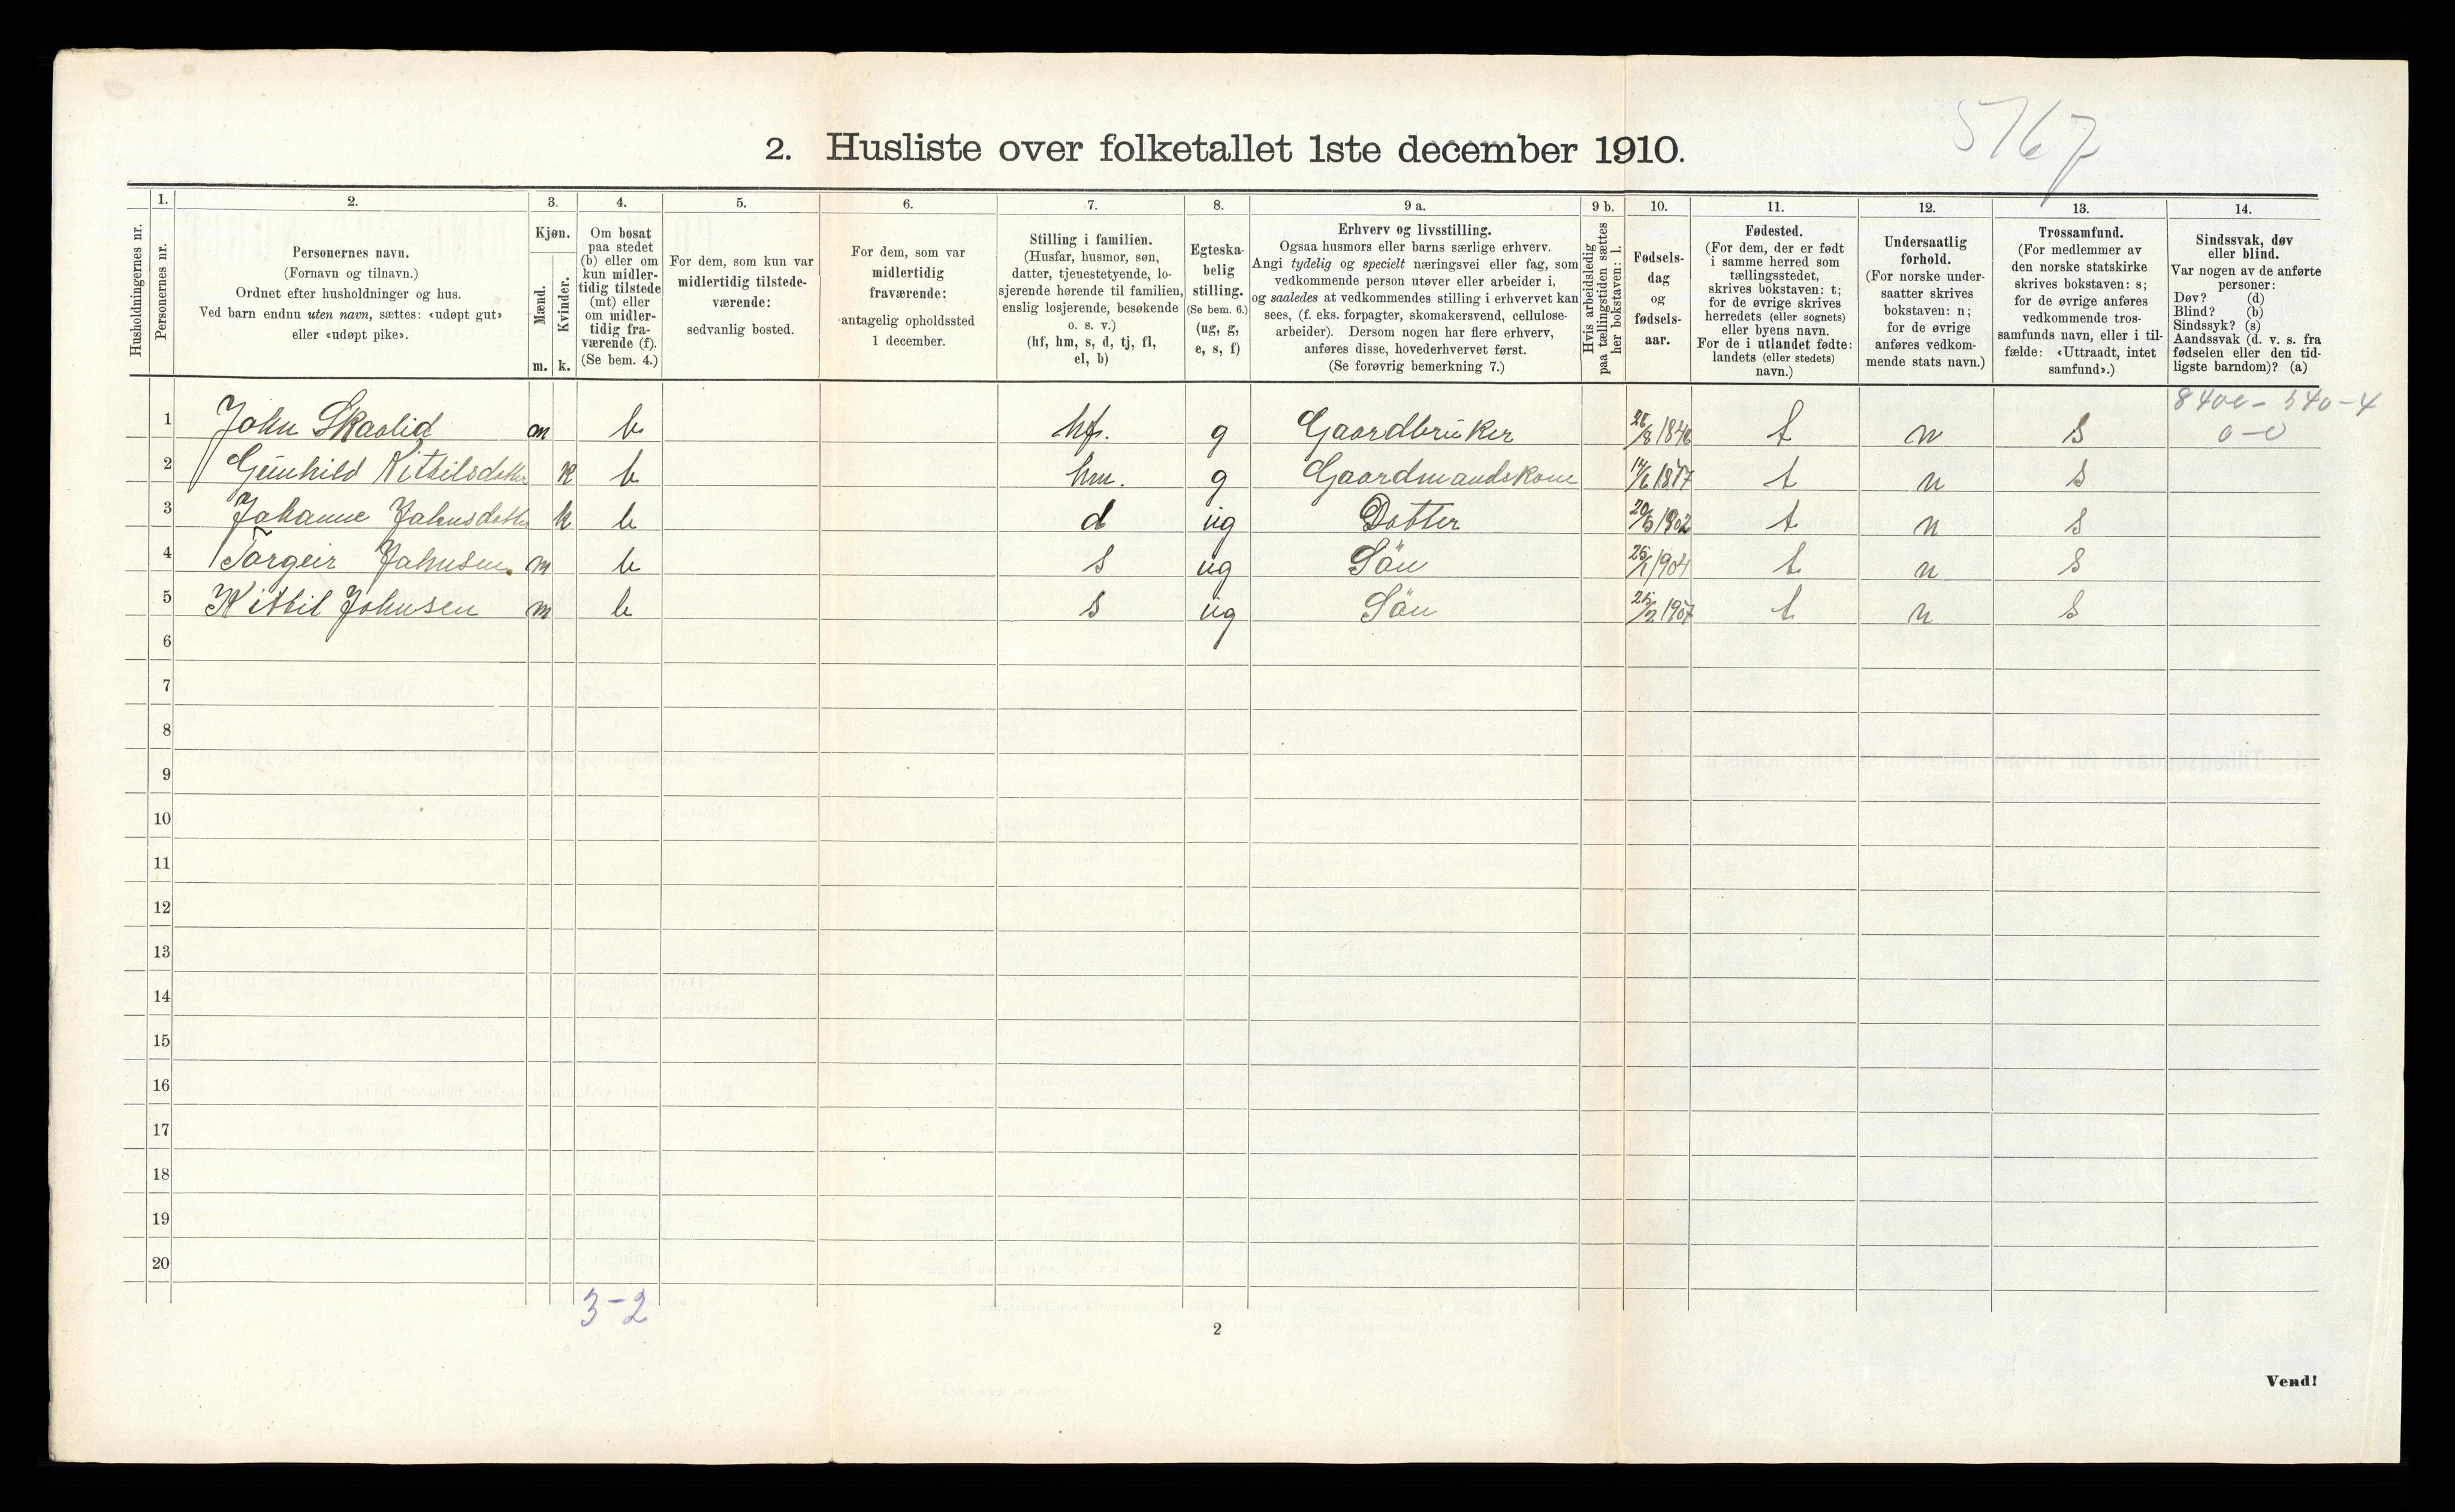 5767
2. Husliste over folketallet 1ste december 1910.
Husholdningernes nr.
1.
Personernes nr.
2.
Personernes navn.
(Fornavn og tilnavn.)
Ordnet efter husholdninger og hus.
Ved barn endnu uten navn, sættes: «udøpt gut»
eller «udøpt pike».
3.
Kjøn.
Mænd.
Kvinder.
m. k.
4.
Om bosat
paa stedet
(b) eller om
kun midler-
tidig tilstede
(mt) eller
om midler-
tidig fra-
værende (f).
(Se bem. 4.)
5.
For dem, som kun var
midlertidig tilstede-
værende:
sedvanlig bosted.
6.
For dem, som var
midlertidig
fraværende:
antagelig opholdssted
1 december.
7.
Stilling i familien.
(Husfar, husmor, søn,
datter, tjenestetyende, lo-
sjerende hørende til familien,
enslig losjerende, besøkende
o. s. v.)
(hf, hm, s, d, tj, fl,
el, b)
8.
Egteska-
belig
stilling.
(Se bem. 6.)
(ug, g,
e, s, f)
9 a.
Erhverv og livsstilling.
Ogsaa husmors eller barns særlige erhverv.
Angi tydelig og specielt næringsvei eller fag, som
vedkommende person utøver eller arbeider i,
og saaledes at vedkommendes stilling i erhvervet kan
sees, (f. eks. forpagter, skomakersvend, cellulose-
arbeider). Dersom nogen har flere erhverv,
anføres disse, hovederhvervet først.
(Se forøvrig bemerkning 7.)
9 b.
Hvis arbeidsledig
paa tællingstiden sættes
her bokstaven: l.
10.
Fødsels-
dag
og
fødsels-
aar.
11.
Fødested.
(For dem, der er født
i samme herred som
tællingsstedet,
skrives bokstaven: t;
for de øvrige skrives
herredets (eller sognets)
eller byens navn.
For de i utlandet fødte:
landets (eller stedets)
navn.)
12.
Undersaatlig
forhold.
(For norske under-
saatter skrives
bokstaven: n;
for de øvrige
anføres vedkom-
mende stats navn.)
13.
Trossamfund.
(For medlemmer av
den norske statskirke
skrives bokstaven: s;
for de øvrige anføres
vedkommende tros-
samfunds navn, eller i til-
fælde: «Uttraadt, intet
samfund».)
14.
Sindssvak, døv
eller blind.
Var nogen av de anførte
personer:
Døv? (d)
Blind? (b)
Sindssyk? (s)
Aandssvak (d. v. s. fra
fødselen eller den tid-
ligste barndom)? (a)
1 John Skaolid m b hf. g Gaardbruker 26/8 1846 t n s
0-0
2 Gunhild Kittilsdotter k b hm. g Gaardmandskone t n s
3 Johanne Johnsdotter k b d ug Dotter t n s
4 Torgeir Johnsen. m b s ug Sön 25/1 1904 t n s
5 Kittil Johnsen m b s ug Sön 25/2 1907 t n s
6
7
8
9
10
11
12
13
14
15
16
17
18
19
20
3-2
2
Vend!